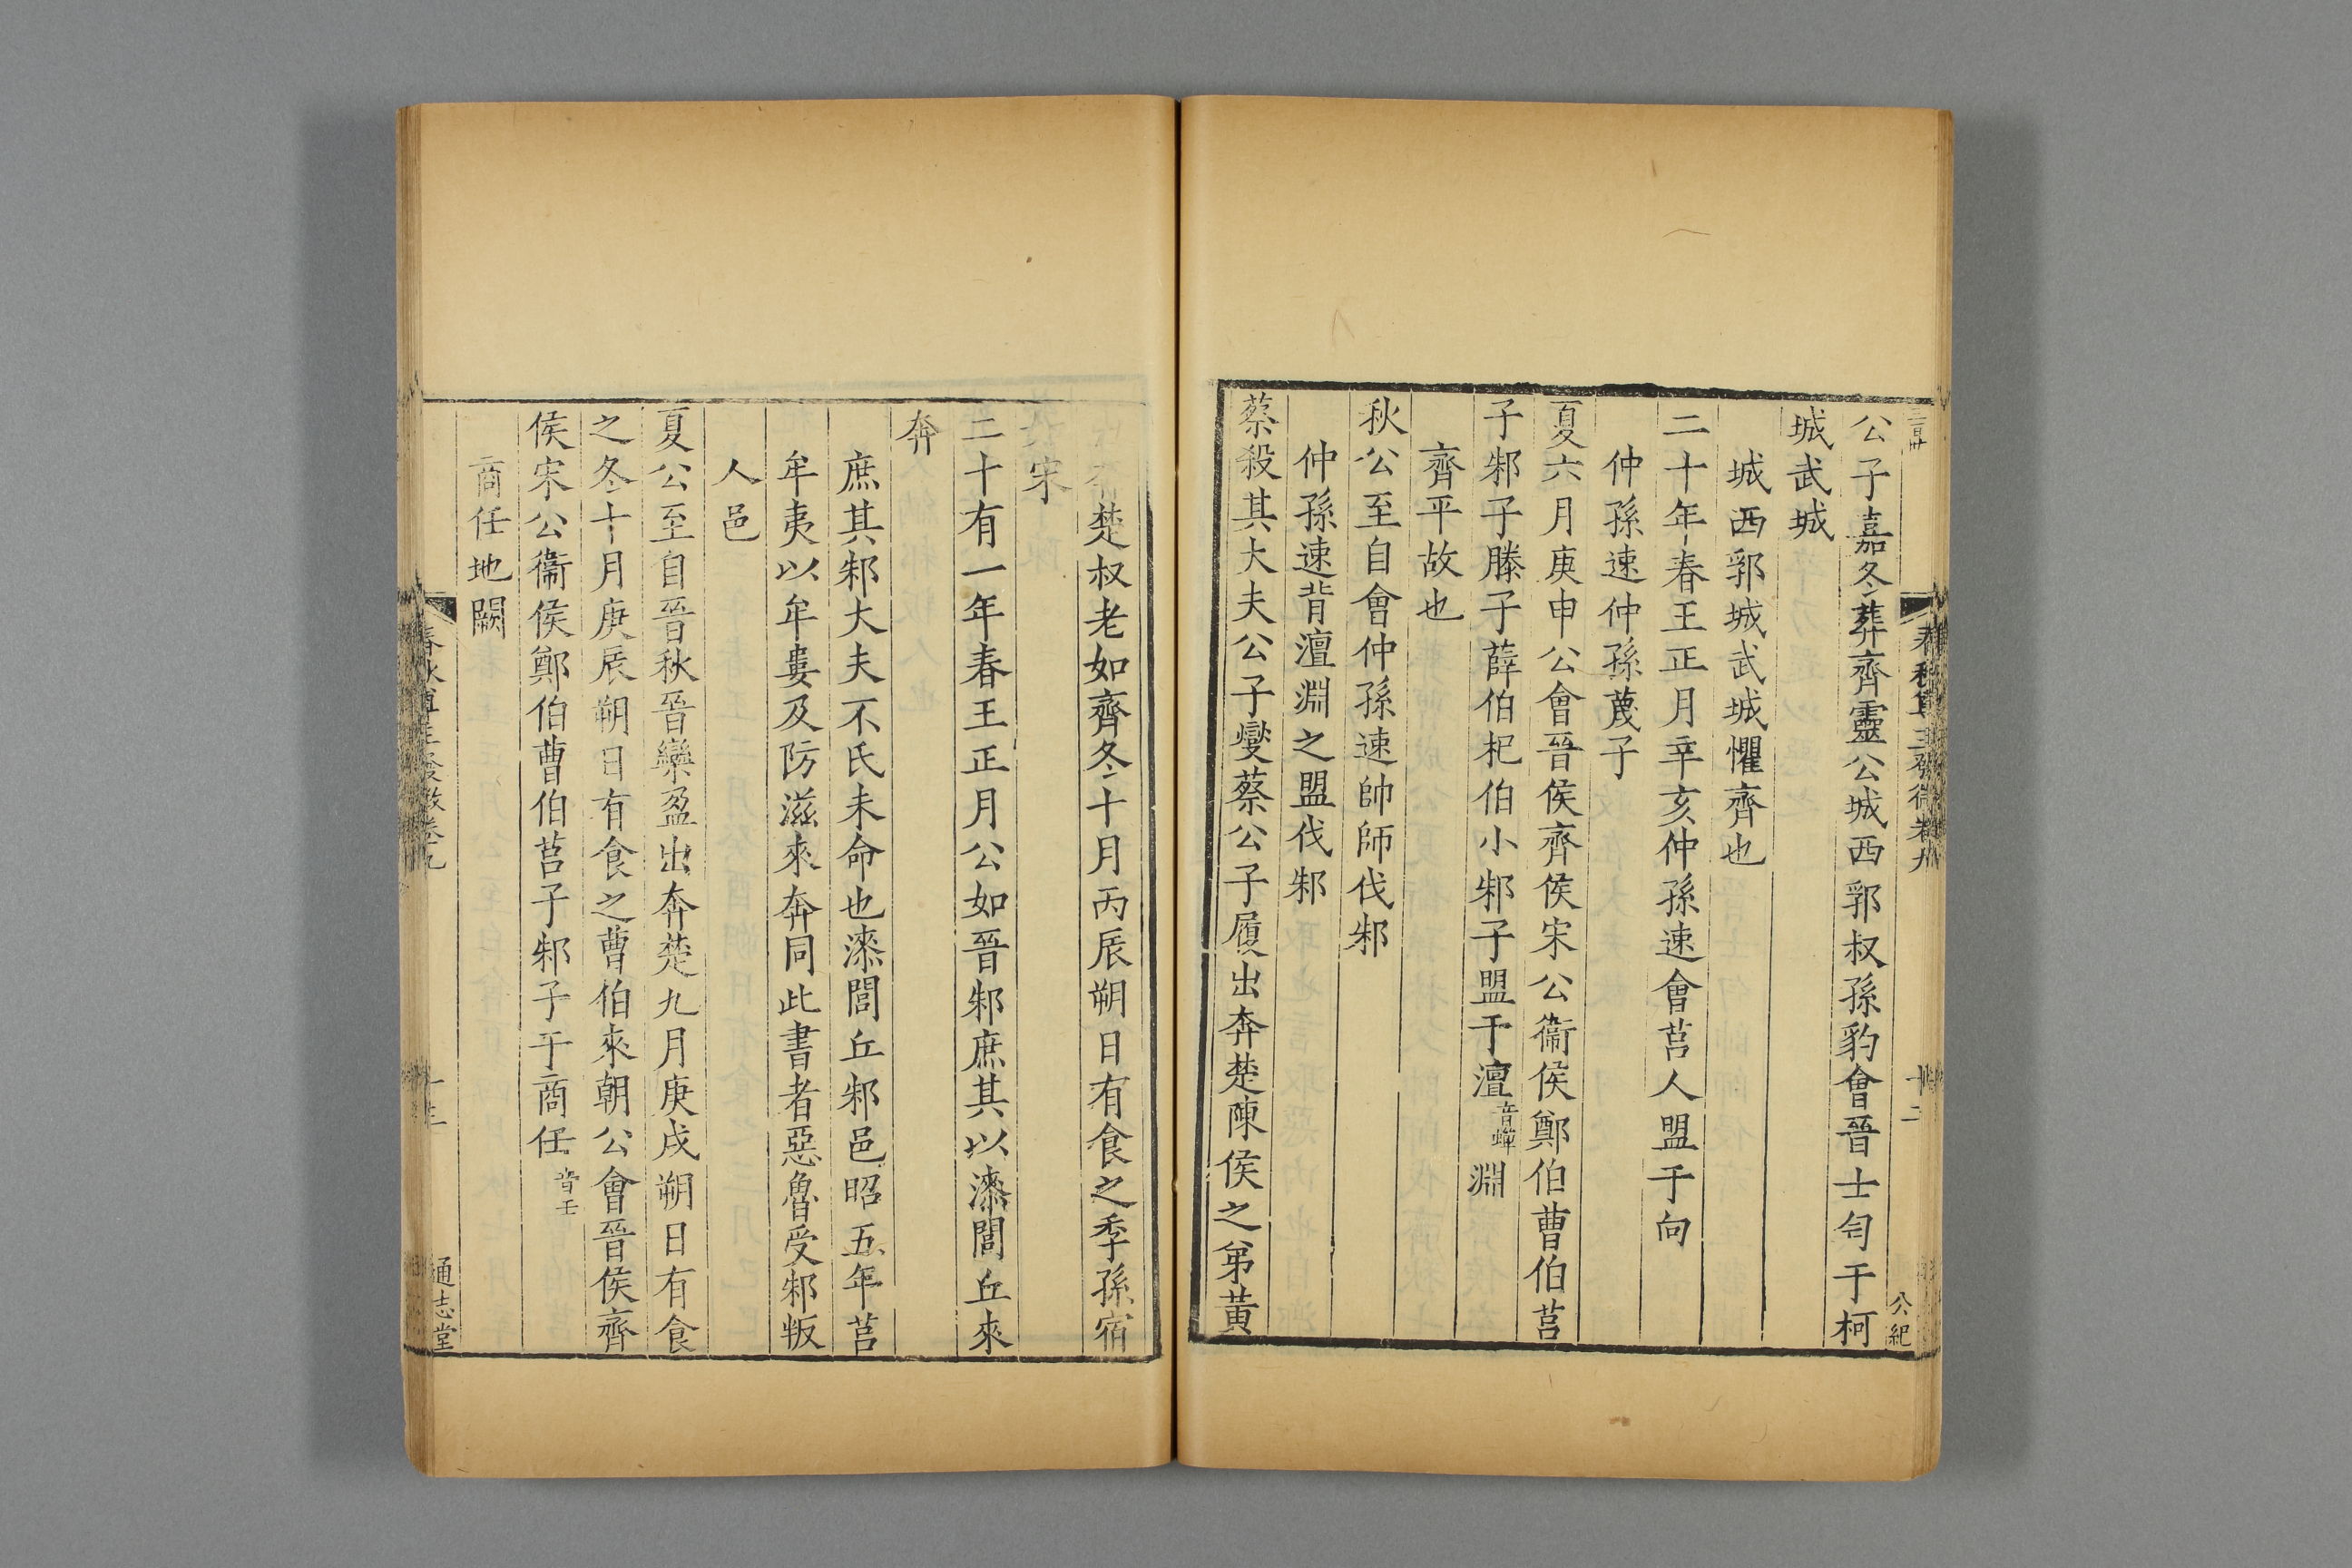 公子嘉冬葬齊靈公城西郭叔孫豹會晉士匄于柯
城武城
城西郭城武城懼齊也
二十年春王正月辛亥仲孫速會莒人盟于向
仲孫速仲孫蔑子
夏六月庚申公會晉侯齊侯宋公衞侯鄭伯曹伯莒
子邾子滕子薛伯杞伯小邾子盟于澶音蟬淵
齊平故也
秋公至自會仲孫速帥師伐邾
仲孫速背澶淵之盟伐邾
蔡殺其大夫公子燮蔡公子履出奔楚陳侯之弟黃
十二
公紀
楚叔老如齊冬十月丙辰朔日有食之季孫宿
宋
二十有一年春王正月公如晉邾庶其以漆閭丘來
奔
庶其邾大夫不氏未命也漆閭丘邾邑昭五年莒
牟夷以牟婁及防滋來奔同此書者惡魯受邾叛
人邑
夏公至自晉秋晉欒盈出奔楚九月庚戌朔日有食
之冬十月庚辰朔日有食之曹伯來朝公會晉侯齊
侯宋公衞侯鄭伯曹伯莒子邾子于商任音壬
商任地闕
通志堂